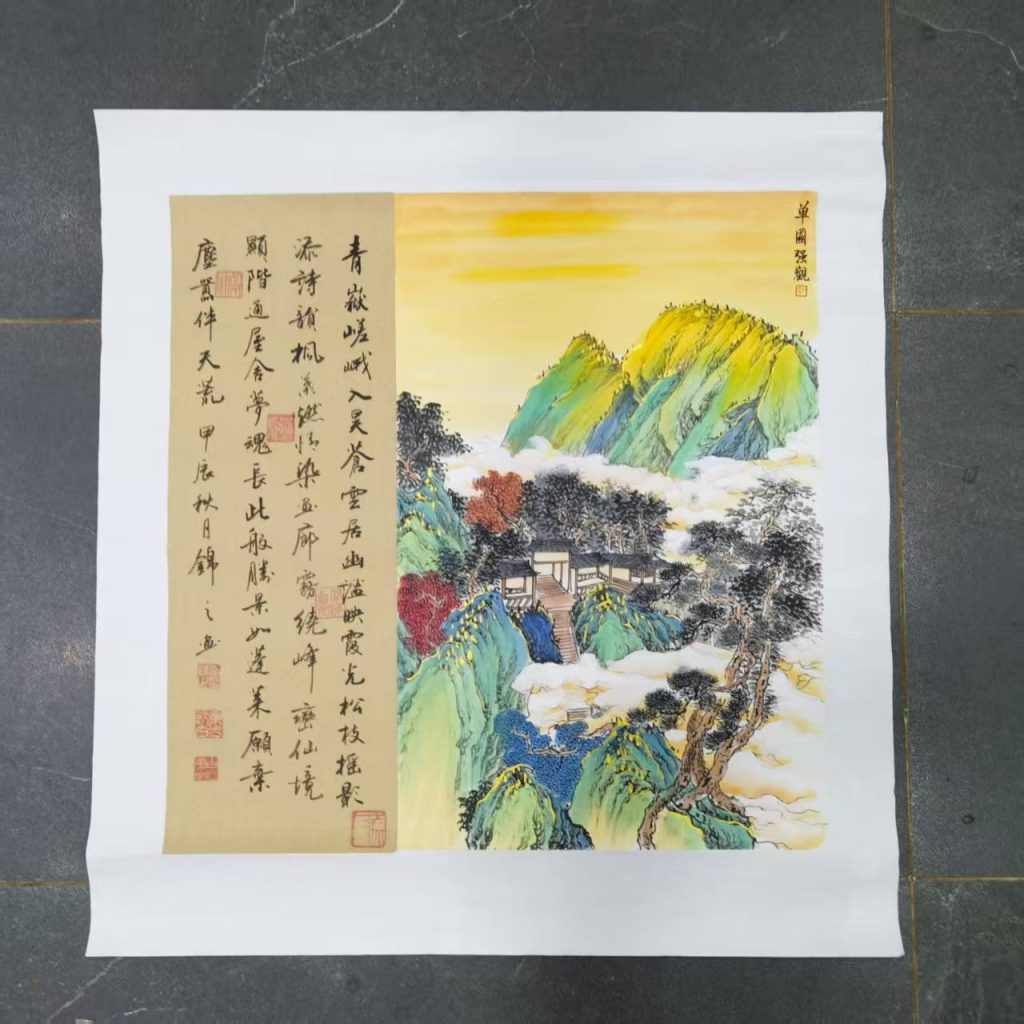 青嶽嵯峨入昊蒼雲居幽謐映霞光松枝摇影
添詩韻楓葉燃情染画廊霧繞峰巒仙境
顯階通屋舍夢魂長此般勝景如蓬萊願棄
塵囂伴天荒甲辰秋月錦之画
單國强觀